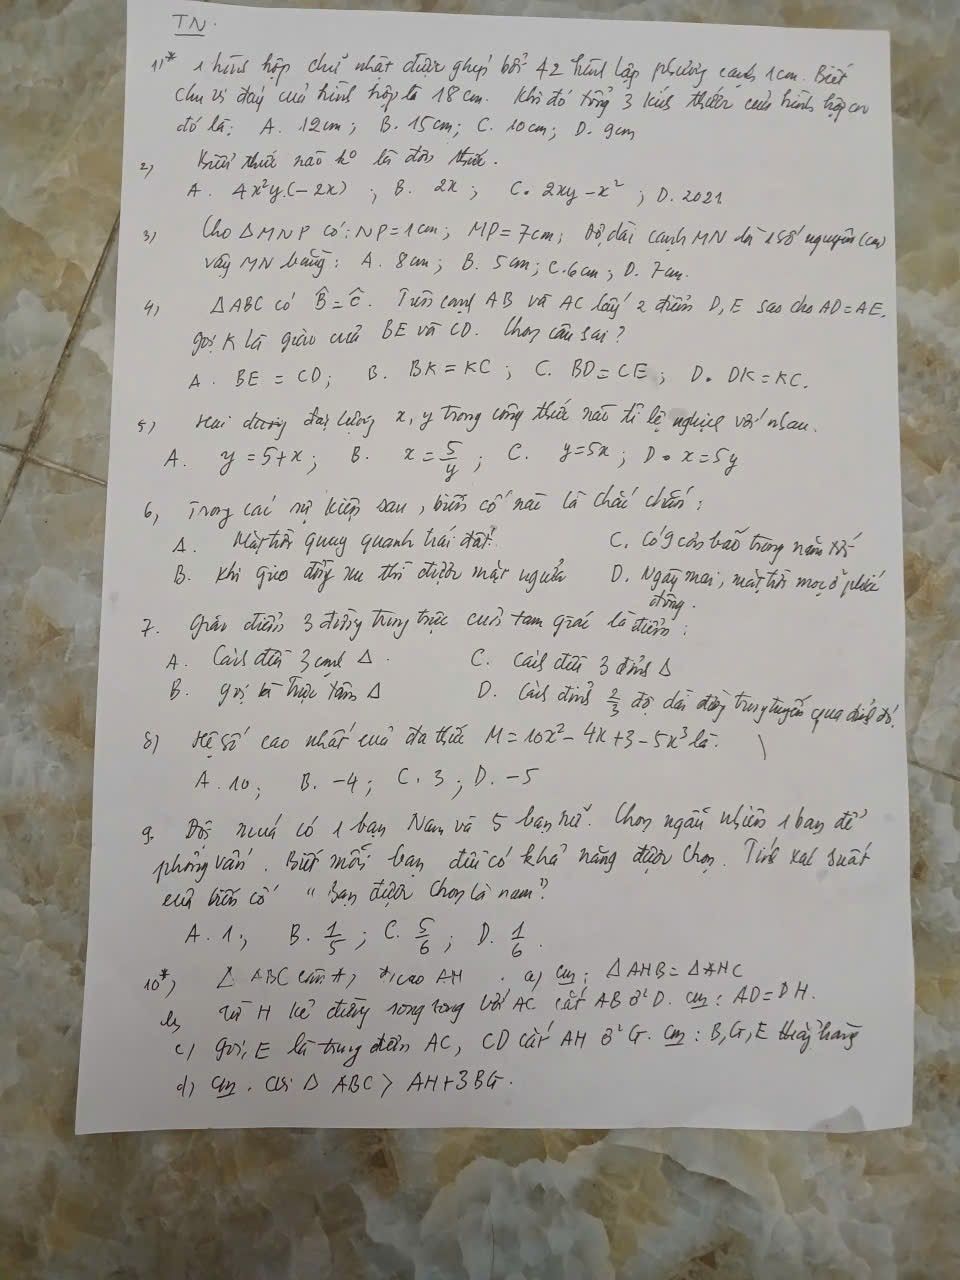 TN.
1)* 1 hình hộp chữ nhật được ghép bởi 42 hình lập phương cạnh 1cm. Biết
chu vi đáy của hình hộp là 18cm. Khi đó tổng 3 kích thước của hình hộp
đó là: A. 12cm; B. 15cm; C. 10cm; D. 9cm
2) Biểu thức nào k⁰ là đơn thức.
A. 4x²y.(-2x) ; B. 2x ; C. 2xy - x² ; D. 2021
3) Cho ΔMNP có: NP = 1cm; MP = 7cm; Độ dài cạnh MN là 1 số nguyên (cm)
vậy MN bằng: A. 8cm; B. 5cm; C. 6cm; D. 7cm.
4) ΔABC có B̂ = Ĉ. Trên cạnh AB và AC lấy 2 điểm D, E sao cho AD = AE.
gọi K là giao của BE và CD. Chọn câu sai?
A. BE = CD; B. BK = KC; C. BD = CE; D. DK = KC.
5) Hai đại lượng x, y trong công thức nào tỉ lệ nghịch với nhau.
A. y = 5+x; B. x = 5/y ; C. y = 5x; D. x = 5y
6, Trong các sự kiện sau, biến cố nào là chắc chắn:
A. Mặt trời quay quanh trái đất. C. Có 9 cơn bão trong năm tới
B. Khi gieo đồng xu thì được mặt ngửa D. Ngày mai, mặt trời mọc ở phía
đông.
7. Giao điểm 3 đường trung trực của tam giác là điểm:
A. Cách đều 3 cạnh Δ. C. cách đều 3 đỉnh Δ
B. gọi là trực tâm Δ D. Cách đỉnh 2/3 độ dài đường trung tuyến qua đỉnh đó.
8) Hệ số cao nhất của đa thức M = 10x² - 4x + 3 - 5x³ là.
A. 10; B. -4; C. 3; D. -5
9. Đội múa có 1 bạn Nam và 5 bạn nữ. Chọn ngẫu nhiên 1 bạn để
phỏng vấn. Biết mỗi bạn đều có khả năng được chọn. Tính xác suất
của biến cố "Bạn được chọn là nam"?
A. 1; B. 1/5 ; C. 5/6 ; D. 1/6.
10*) Δ ABC cân A, đ/cao AH. a) cm: ΔAHB = ΔAHC
b, Từ H kẻ đường song song với AC cắt AB ở D. cm: AD = DH.
c) gọi E là trung điểm AC, CD cắt AH ở G. cm: B, G, E thẳng hàng
d) cm. cvi Δ ABC > AH + 3BG.